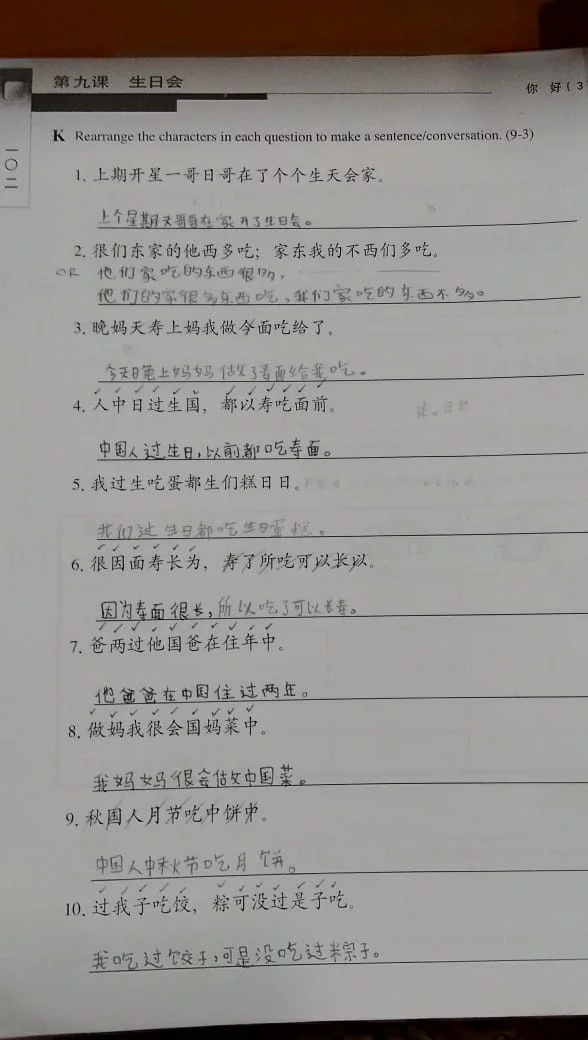 第九课 生日会
你 好 ( 3
一〇二
K Rearrange the characters in each question to make a sentence/conversation. (9-3)
1. 上期开星一哥日哥在了个个生天会家。
上个星期天哥哥在家开了生日会。
2. 很们东家的他西多吃；家东我的不西们多吃。
OR 他们家吃的东西很多，
他们的家很多东西吃、我们家吃的东西不多。
3. 晚妈天寿上妈我做今面吃给了。
今天晚上妈妈做了寿面给我吃。
4. 人中日过生国，都以寿吃面前。
中国人过生日，以前都吃寿面。
5. 我过生吃蛋都生们糕日日。
我们过生日都吃生日蛋糕。
6. 很因面寿长为，寿了所吃可以长以。
因为寿面很长，所以吃了可以长寿。
7. 爸两过他国爸在住年中。
他爸爸在中国住过两年。
8. 做妈我很会国妈菜中。
我妈妈很会做中国菜。
9. 秋国人月节吃中饼中。
中国人中秋节吃月饼。
10. 过我子吃饺，粽可没过是子吃。
我吃过饺子，可是没吃过粽子。